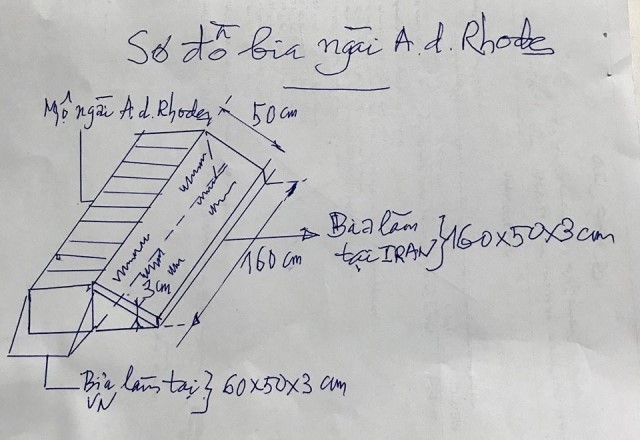 Sơ đồ bia ngài A.d.Rhodes
Mộ ngài A.d.Rhodes
50 cm
160 cm
3cm
Bia làm
tại IRAN } 160x50x3 cm
Bia làm tại
VN } 60x50x3 cm